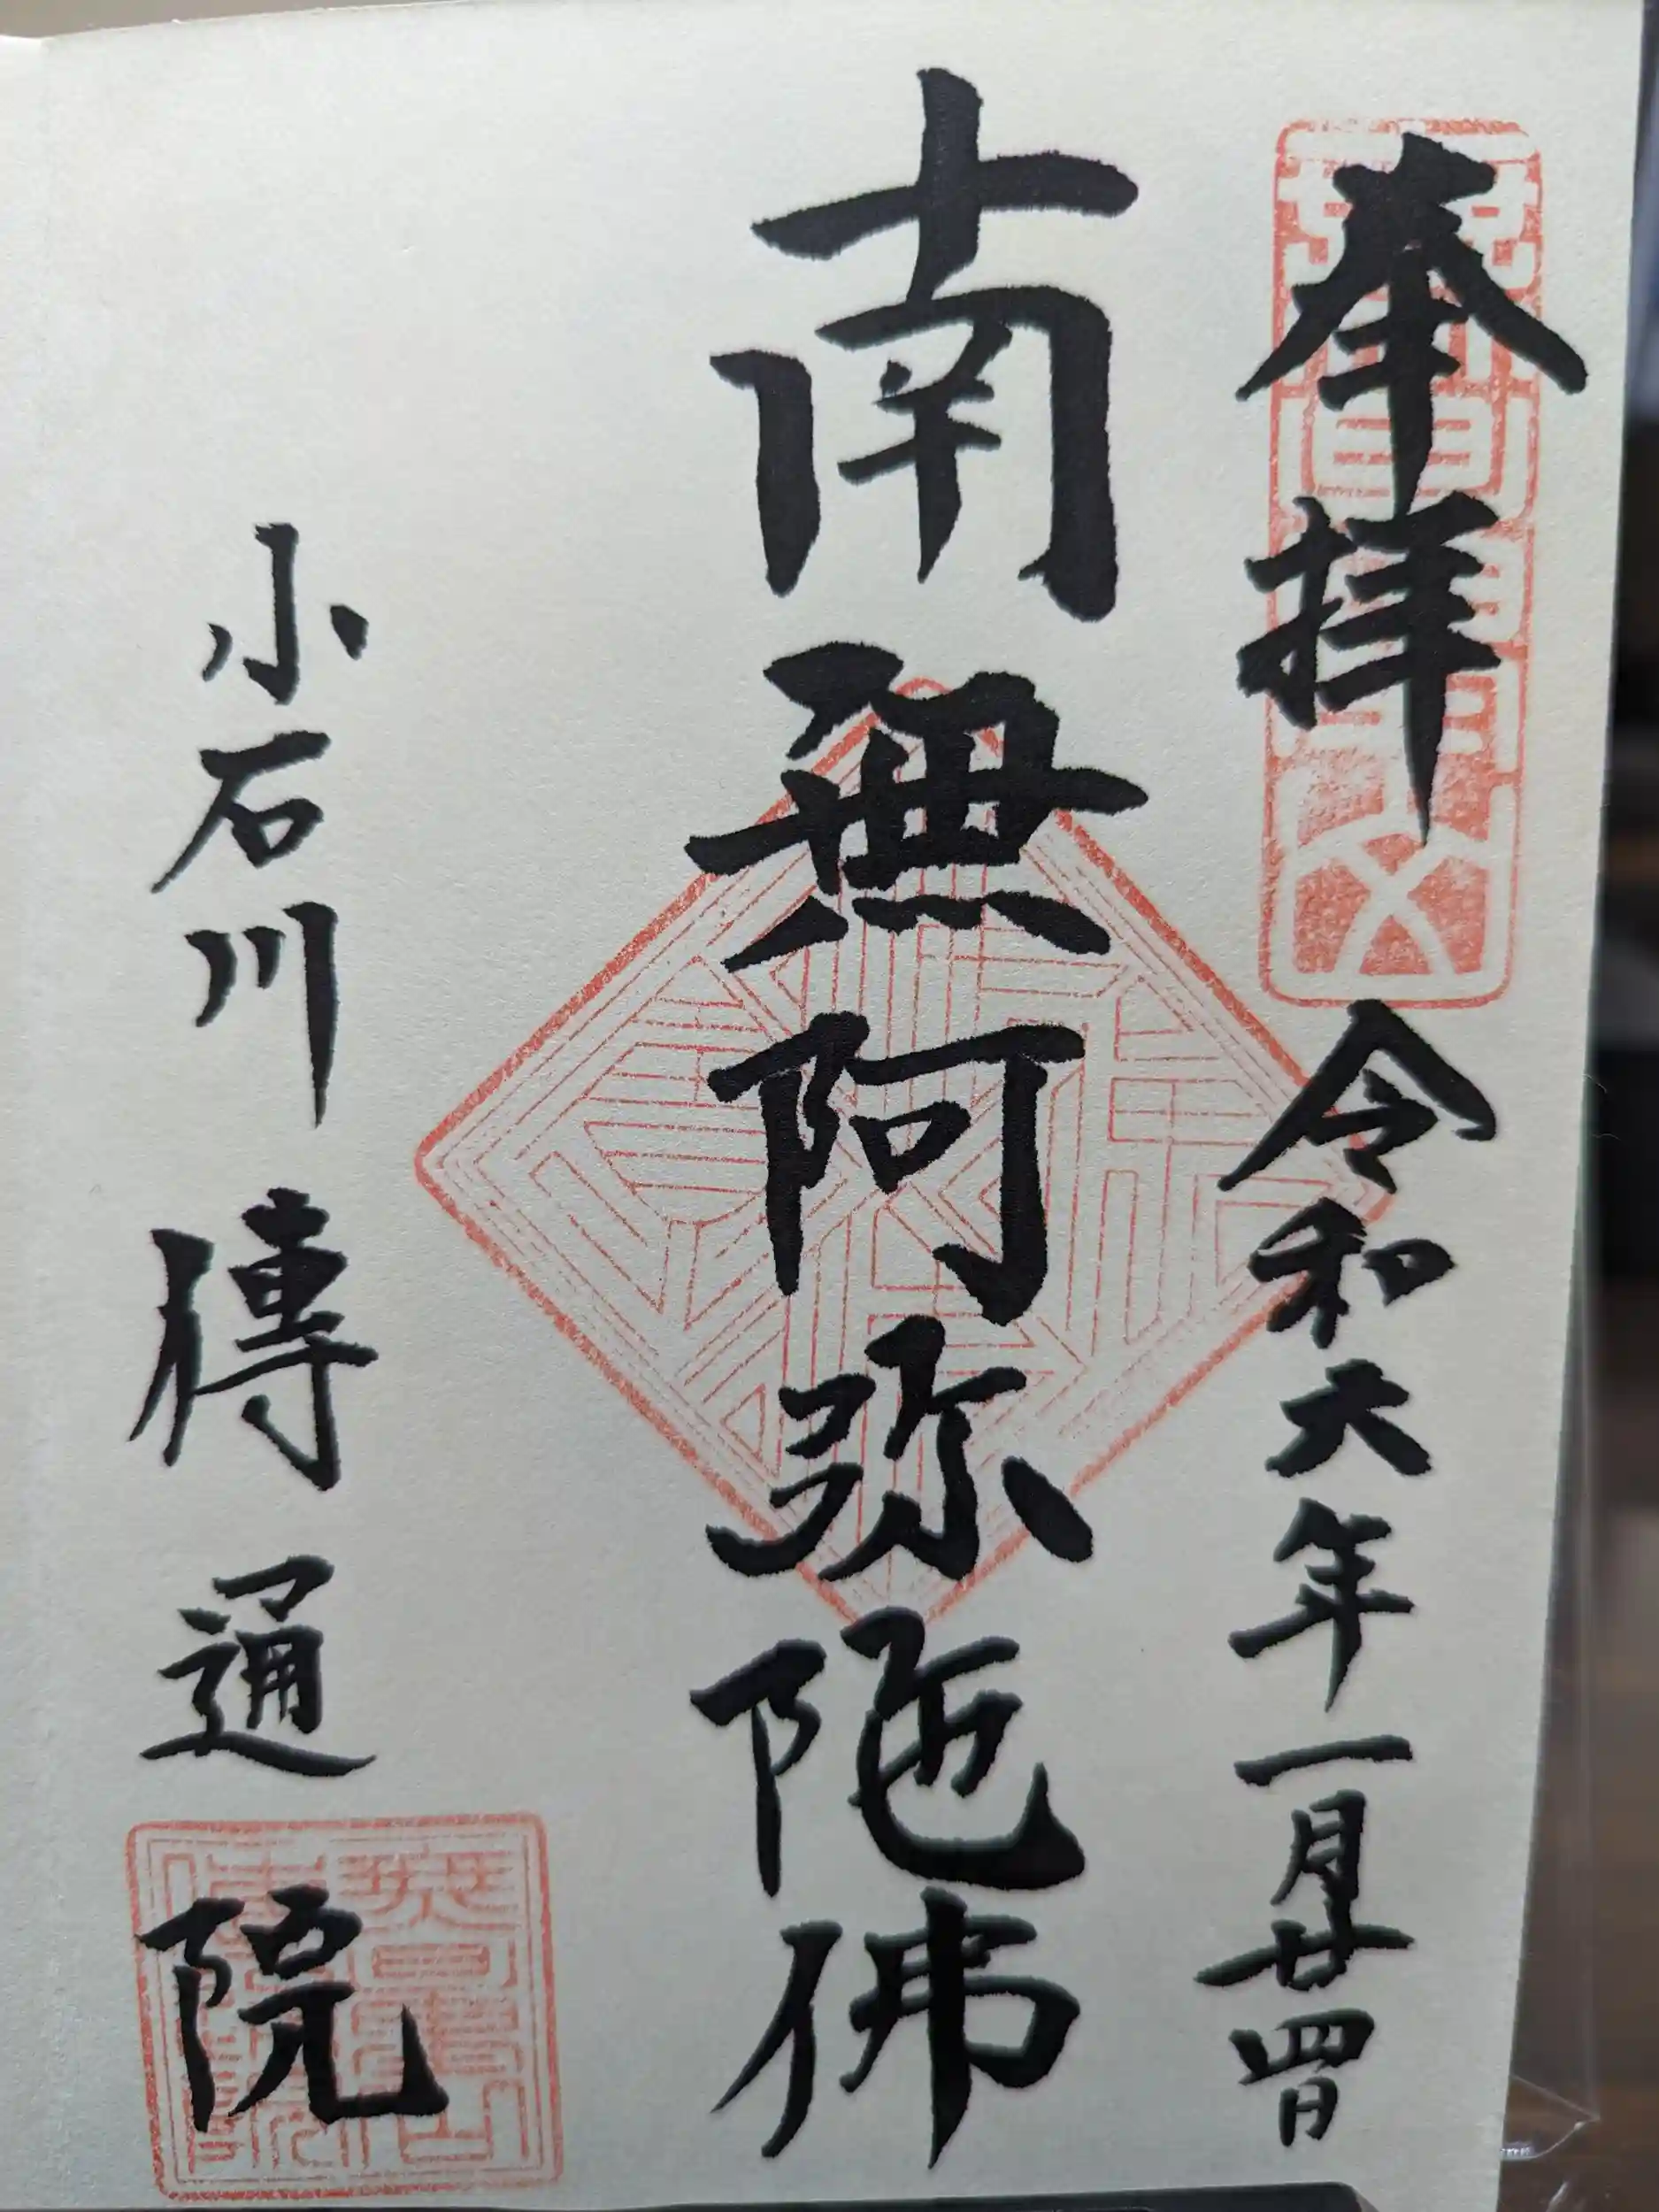 奉拝 令和六年一月廿四日
南無阿弥陀佛
小石川 傳通院